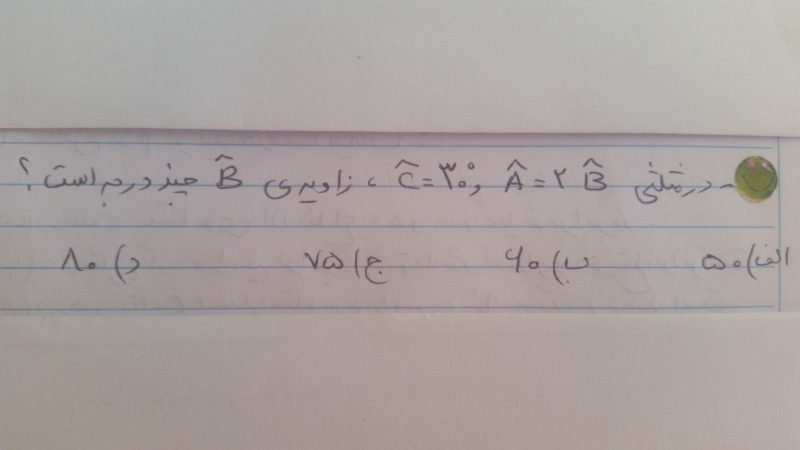 - در مثلثی Â = ۲ B̂ و Ĉ = ۳۰° ، زاویه ی B̂ چند درجه است ؟
الف) ۵۰ ب) ۶۰ ج) ۷۵ د) ۸۰